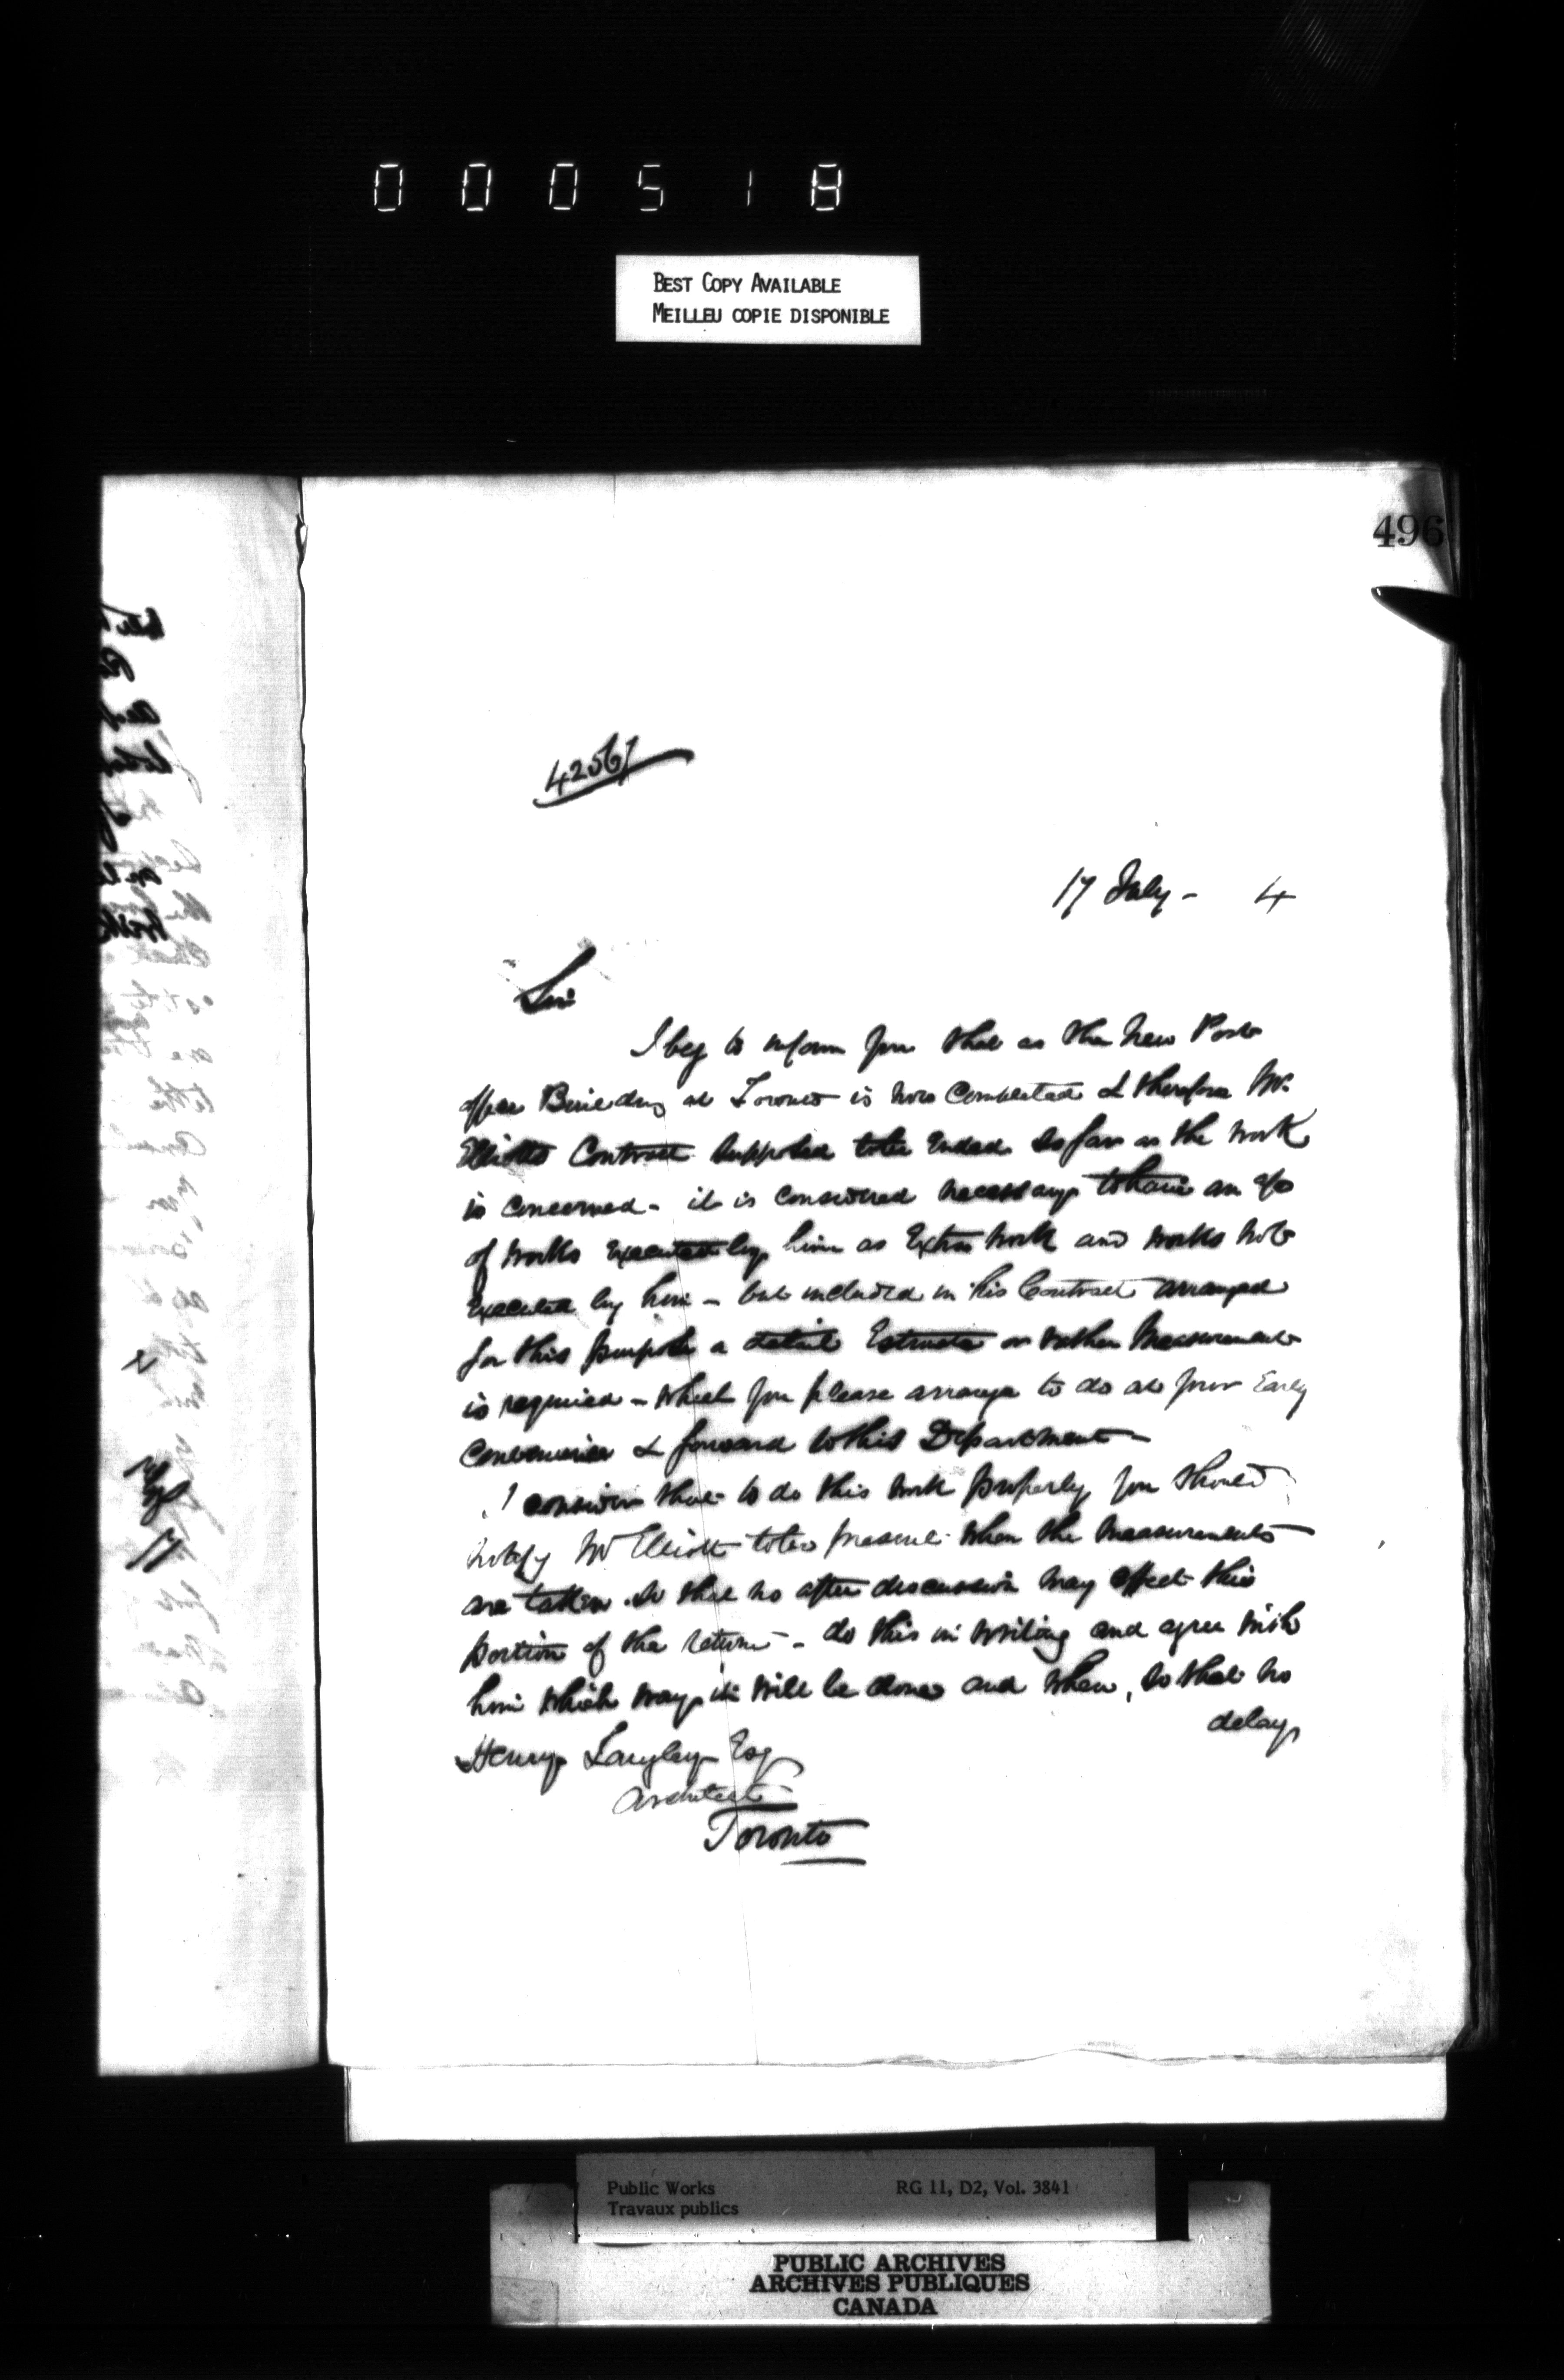 000518
BEST COPY AVAILABLE
MEILLEU COPIE DISPONIBLE
496
42561
17 July - 4
Sir
I beg to inform you that as the New Post
office Building at Toronto is now Completed & therefore Mr.
Elliotts Contract supposed to be Ended so far as the work
is concerned - it is considered necessary to have an a/c
of works executed by him as Extra work and works not
Executed by him - but included in his Contract arranged
for this purpose a detail Estimate or rather Measurement
is required - which you please arrange to do at your Early
Convenience & forward to this Department -
I consider that to do this work properly you should
notify Mr Elliott to be present when the measurements
are taken so that no after discussion may effect this
portion of the return - do this in writing and agree with
him which way it will be done and when, so that no
delay
Henry Langley Esq
Architect
Toronto
Public Works
Travaux publics
RG 11, D2, Vol. 3841
PUBLIC ARCHIVES
ARCHIVES PUBLIQUES
CANADA